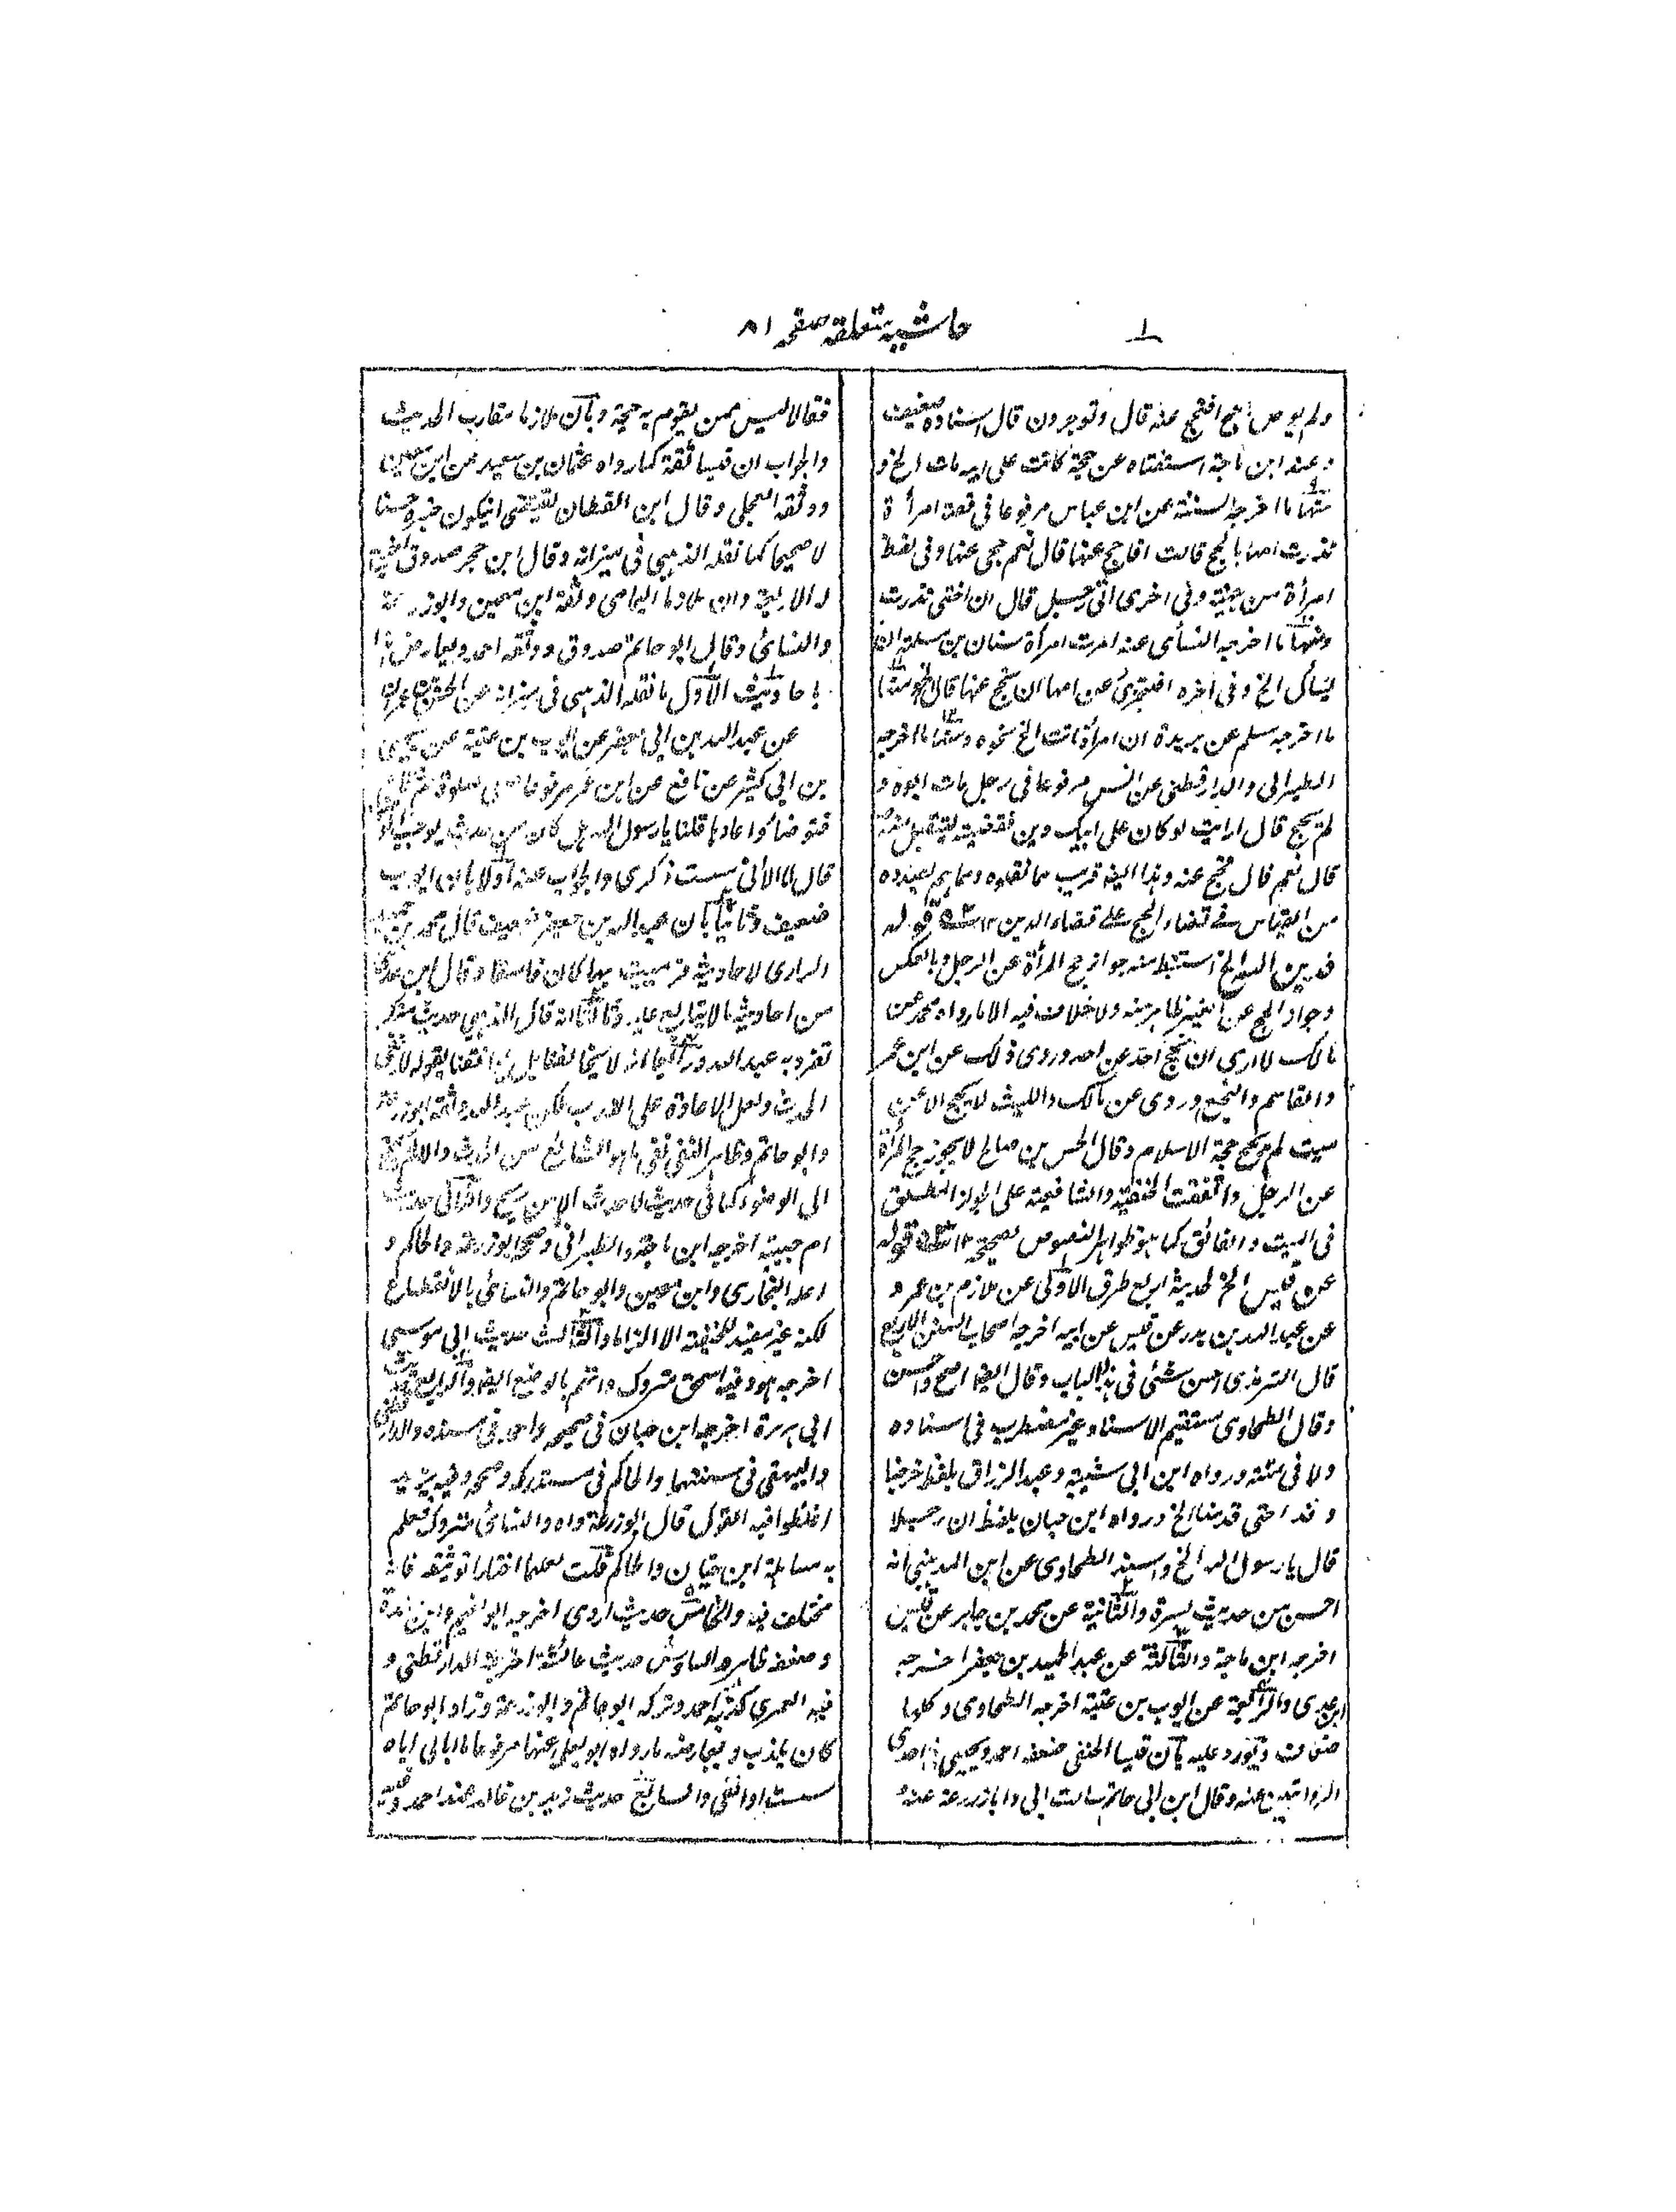 حاشیہ متعلقہ صفحہ ۸۱
ولم يوص بحج افنحج عنه قال وتوجرون قال اسناده ضعيف
وعند ابن ماجة استفتاه عن حجة كانت على ابيه مات الخ و
منها ما اخرجه الستة عن ابن عباس مرفوعا في قصة امرأة
نذرت امها بالحج قالت افاحج عنها قال نعم حجي عنها وفي لفظ
امرأة من جهينة وفي اخرى اتى رجل قال ان اختي نذرت
ومنها ما اخرجه النسأي عنه امرت امرأة سنان بن سلمة ان
يسأل الخ وفي آخره افيجزئ عن امها ان تحج عنها قال نعم ومنها
ما اخرجه مسلم عن بريدة ان امرأة اتت الخ نحوه ومنها ما اخرجه
الطبراني والدارقطني عن انس مرفوعا في رجل مات ابوه و
لم يحج قال ارايت لو كان على ابيك دين فقضيته ايتقبل منه
قال نعم قال فحج عنه وهذا اليف قريب مما نقلوه ومما هم بصدده
من القياس في قضاء الحج على قضاء الدين ١٢ قوله
فدين الله الخ استنبط منه جواز حج المرأة عن الرجل وبالعكس
وجواز الحج عن الغير ظاهر منه ولا خلاف فيه الا ما رواه محمد عن
مالك لا ارى ان يحج احد عن احد وروى ذلك عن ابن عمر
والقاسم والنخعي وروى عن مالك والليث لا يحج الا عن
ميت لم يحج حجة الاسلام وقال الحسن بن صالح لا يجوز حج المرأة
عن الرجل واتفقت الحنفية والشافعية على الجواز المطلق
في الميت والفائق كما هو ظواهر النصوص الصحيحة ١٢ قوله
عن قيس الخ لحديثه اربع طرق الاولى عن ملازم بن عمرو
عن عبد الله بن بدر عن قيس عن ابيه اخرجه اصحاب السنن الاربع
قال الترمذي احسن شئي في هذا الباب وقال ايضا اصح واحسن
وقال الطحاوي مستقيم الاسناد غير مضطرب في اسناده
ولا في متنه ورواه ابن ابي شيبة وعبد الرزاق بلفظ خرجنا
وفدا حتى قدمنا الخ ورواه ابن حبان بلفظ ان رجلا
قال يا رسول الله الخ واسند الطحاوي عن ابن المديني انه
احسن من حديث بسرة والثانية عن محمد بن جابر عن قيس
اخرجه ابن ماجة والثالثة عن عبد الحميد بن جعفر اخرجه
ابن عدي والرابعة عن ايوب بن عتبة اخرجه الطحاوي وكلها
ضعفت ويورد عليه بان قيسا الحنفي ضعفه احمد ويحيى في احدى
الروايتين عنه وقال ابن ابي حاتم سالت ابي وابا زرعة عنه
فقالا ليس ممن يقوم به حجة وبان ملازما مقارب الحديث
والجواب ان قيسا ثقة كما رواه عثمان بن سعيد عن ابن معين
ووثقه العجلي وقال ابن القطان يقتضي ان يكون خبره حسنا
لا صحيحا كما نقله الذهبي في ميزانه وقال ابن حجر صدوق اخرج
له الاربعة وان ملازما اليمامي وثقه ابن معين وابو زرعة
والنسائي وقال ابو حاتم صدوق ووثقه احمد ويعارض هذا
باحاديث الاول ما نقله الذهبي في ميزانه عن
عن عبد الله بن ابي جعفر عن ايوب بن عتبة عن يحيى
بن ابي كثير عن نافع عن ابن عمر مرفوعا
فتوضأ واعادها قلنا يا رسول الله هل كان من حدث يوجب الوضوء
قال لا الا اني مسست ذكري والجواب عنه اولا بان ايوب
ضعيف وثانيا بان عبد الله بن جعفر ضعيف قال محمد بن حميد
الرازي لاحاديثه فرميت بها كان فاسقا وقال ابن عدي
من احاديثه ما لا يتابع عليه وثالثا انه قال الذهبي حديث منكر
تفرد به عبد الله ورابعا انه
الحدث ولعل الاعادة على الندب لكن عبد الله وثقه ابو زرعة
وابو حاتم وظاهر النفي نفي ما هو الشائع من الحدث
الى الوضوء كما في حديث لا حدث الا من ريح والثاني حديث
ام حبيبة اخرجه ابن ماجة والطبراني وصححه ابو زرعة والحاكم و
اعله البخاري وابن معين وابو حاتم والنسائي بالانقطاع
لكنه غير مفيد للحنفية الا الزاما والثالث حديث ابي موسى
اخرجه هو وفيه اسحق متروك واتهم بالوضع ايضا والرابع حديث
ابي هريرة اخرجه ابن حبان في صحيحه واحمد في مسنده والدارقطني
والبيهقي في سننهما والحاكم في مستدركه وصححه وفيه يزيد
اغلظوا فيه القول قال ابو زرعة واه والنسائي متروك فعلم
به مساهلة ابن حبان والحاكم قلت لعلهما اختارا توثيقه فانه
مختلف فيه والخامس حديث اروى اخرجه ابو نعيم وابن مندة
وضعفه ظاهر والسادس حديث عائشة اخرجه الدارقطني و
فيه العمري كذبه احمد وتركه ابو حاتم وابو زرعة وزاد ابو حاتم
كان يكذب ويعارضه ما رواه ابو يعلى عنها مرفوعا ما ابالي اياه
مسست او انفي والسابع حديث زيد بن خالد عند احمد وفيه